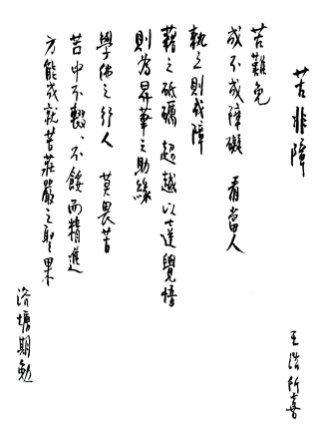 苦非障
苦難免
成不成障礙 看當人
執之則成障
藉之砥礪 超越以達覺悟
則為昇華之助緣
學佛之行人 莫畏苦
苦中不輟、不餒而精進
方能成就苦莊嚴之聖果
王浩所喜
期勉